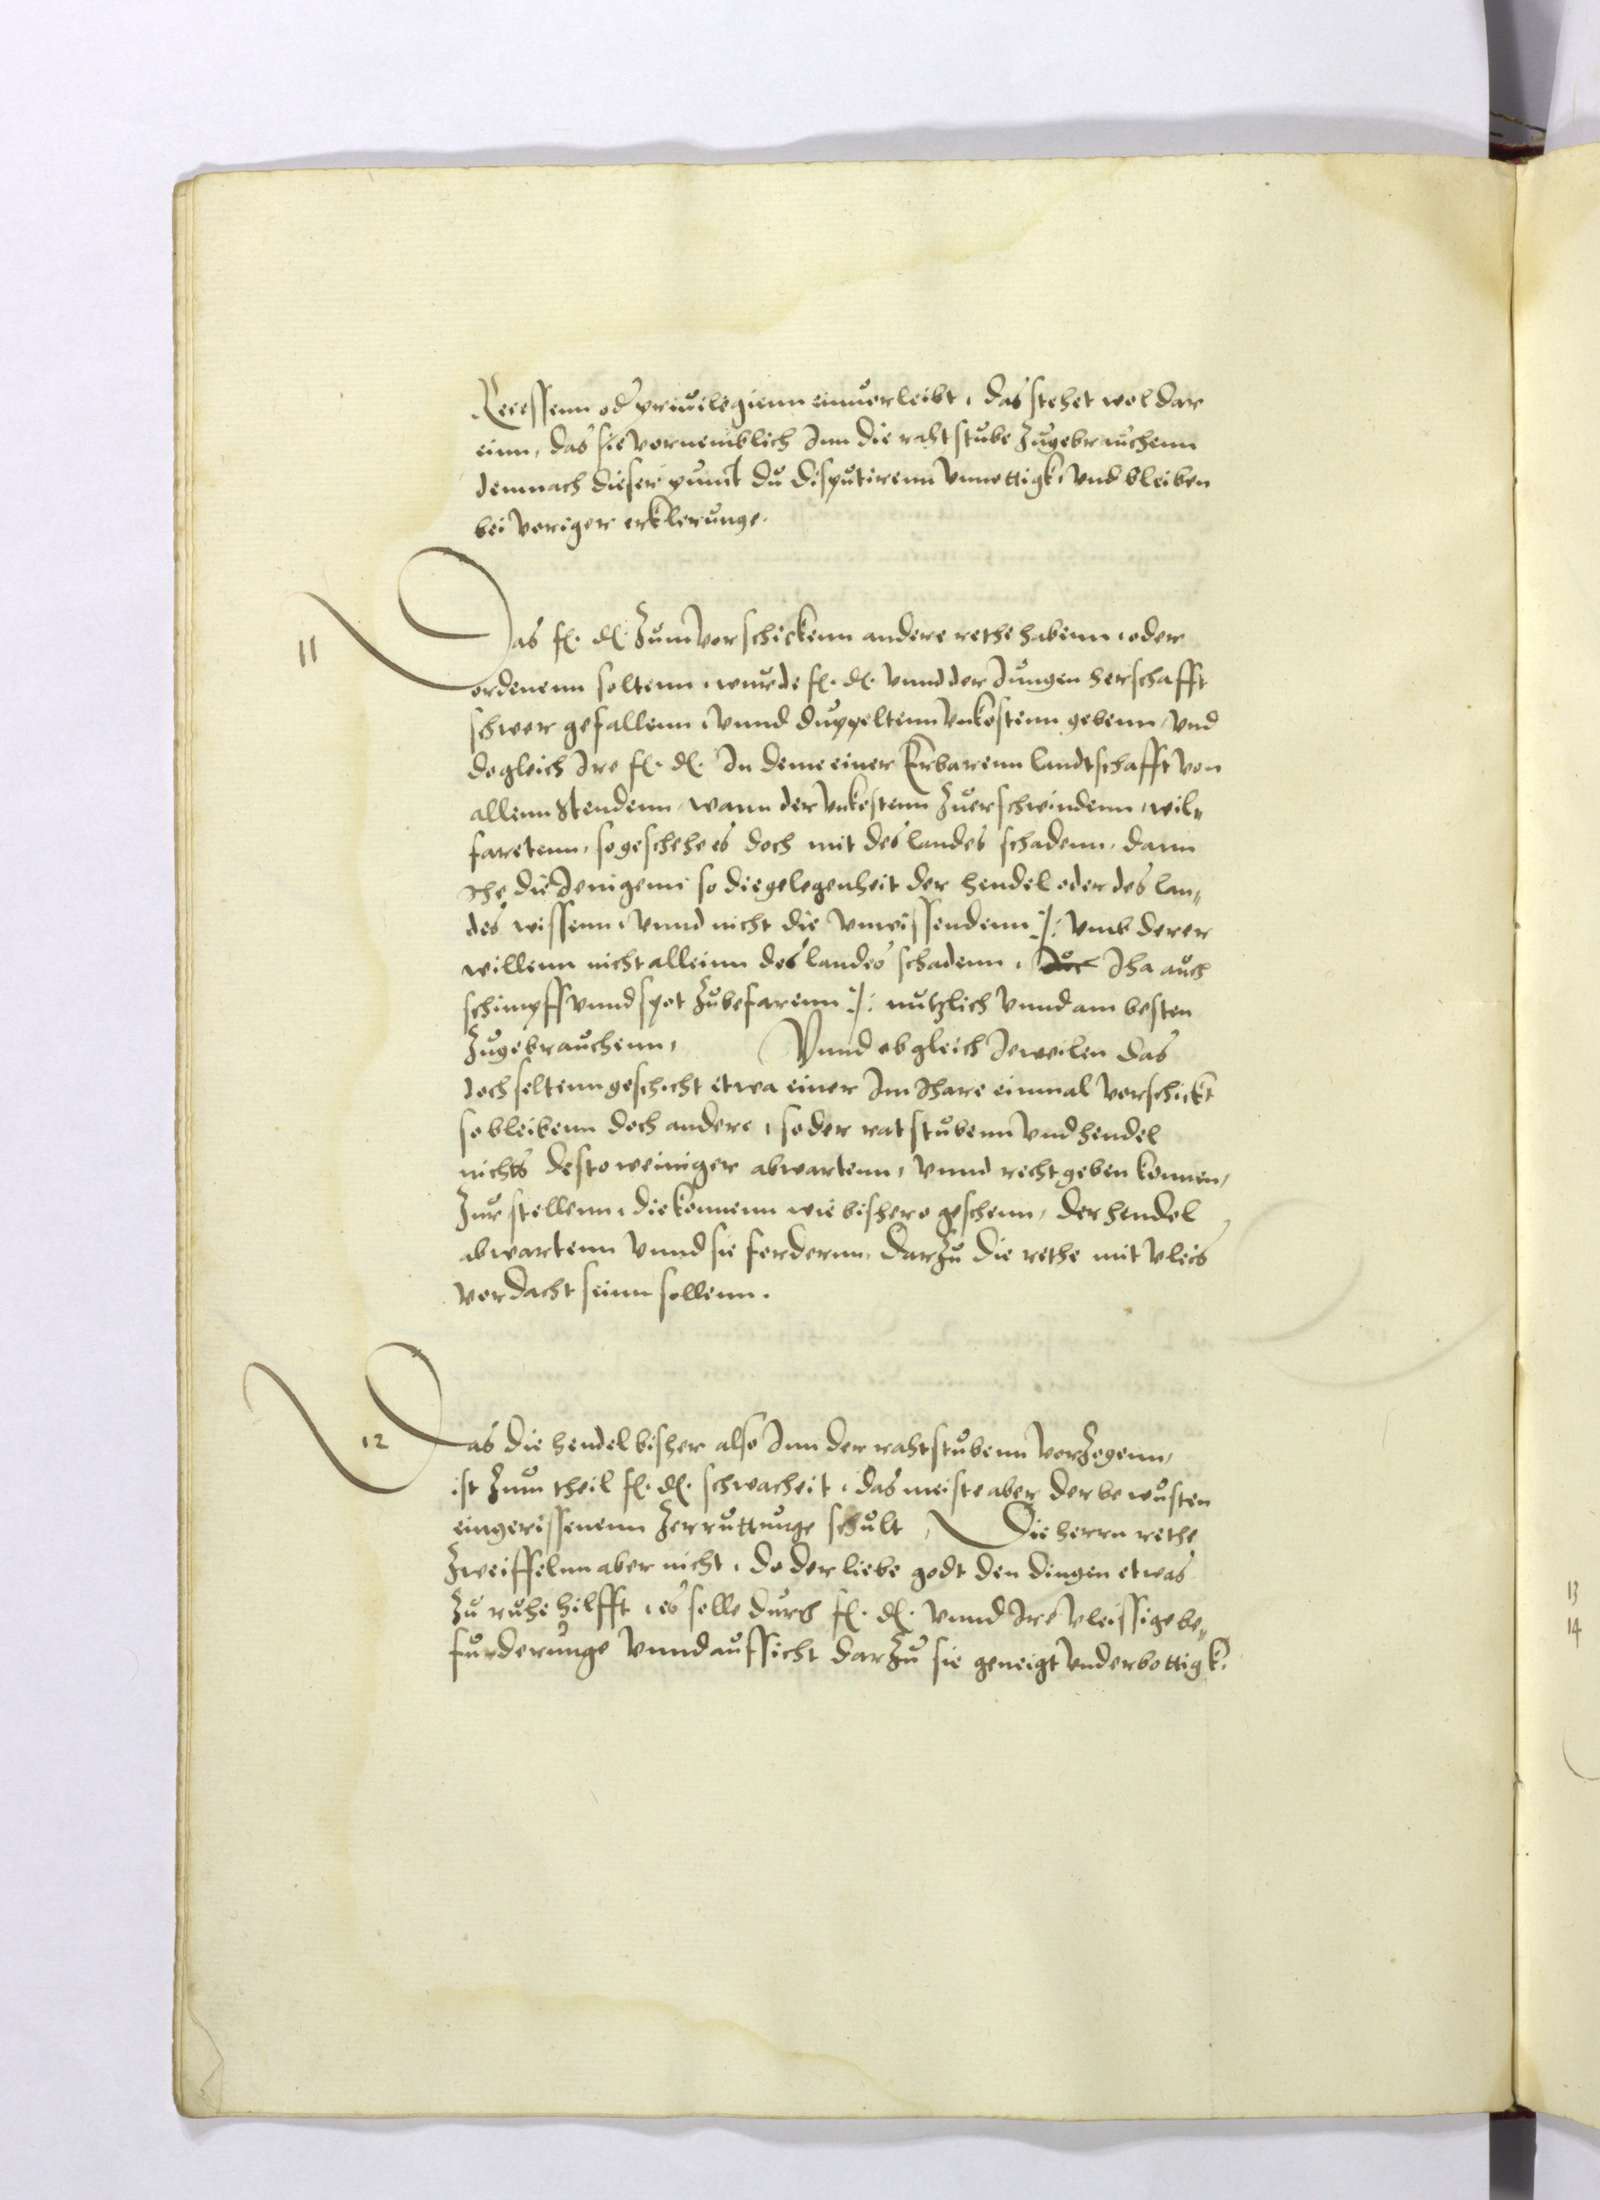 Recessenn od priuilegienn einuorleibt, das stehet wol dar
einn, das sie vornemblich Inn die rahtstube zugebrauchenn
demnach dieser punct du disputirenn vnnottigk, vnd bleiben
bei voriger erklerunge.
11 Das fl. dl. zum vorschickenn andere rethe habenn, oder
ordenenn soltenn, wurde fl. dl. vnnd der Jungen herschafft
schwer gefallenn, vnnd duppeltenn vnkostenn gebenn, vnd
dogleich Ire fl. dl. In deme einer Erbarenn landtschafft von
allenn Stendenn, wann der vnkostenn zuerschwindenn, wil„
faretenn, so geschehe es doch mit des landes schadenn, dann
Jhe die Jenigenn so die gelegenheit der hendel oder des lan„
des wissenn, vnnd nicht die vnwissendenn :/: vmb derer
willenn nicht alleinn des landes schadenn, Jha auch
schimpff vnnd spot zubefarenn :/: nutzlich vnnd am besten
zugebrauchenn, Vnnd ob gleich Jeweilen das
doch seltenn geschicht etwa einer Im Jhare einmal vorschickt
so bleibenn doch andere, so der ratstubenn vnd hendel
nichts desto weiniger abwartenn, vnnd recht geben konnen,
zur stellenn, die konnenn wie bishero geschenn, der hendel
abwartenn vnnd sie fordernn, darzu die rethe mit vleis
vordacht seinn sollenn.
12 Das die hendel bisher also Inn der rahtstubenn vorzogenn,
ist zum theil fl. dl. schwacheit, das meiste aber der bewusten
eingerissenenn zerruttunge schult, Die herrn rethe
zweiffelnn aber nicht, do der liebe godt den dingen etwas
zu ruhe hilfft, es solle durch fl. dl. vnnd Ire vleissige be„
furderunge vnnd auffsicht darzu sie geneigt vnd erbottigk,
13
14